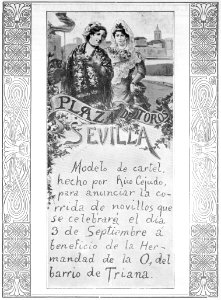 PLAZA DE TOROS
SEVILLA
Modelo de cartel,
hecho por Río Cejudo,
para anunciar la co-
rrida de novillos que
se celebrará el día
3 de Septiembre á
beneficio de la Her-
mandad de la O, del
barrio de Triana.